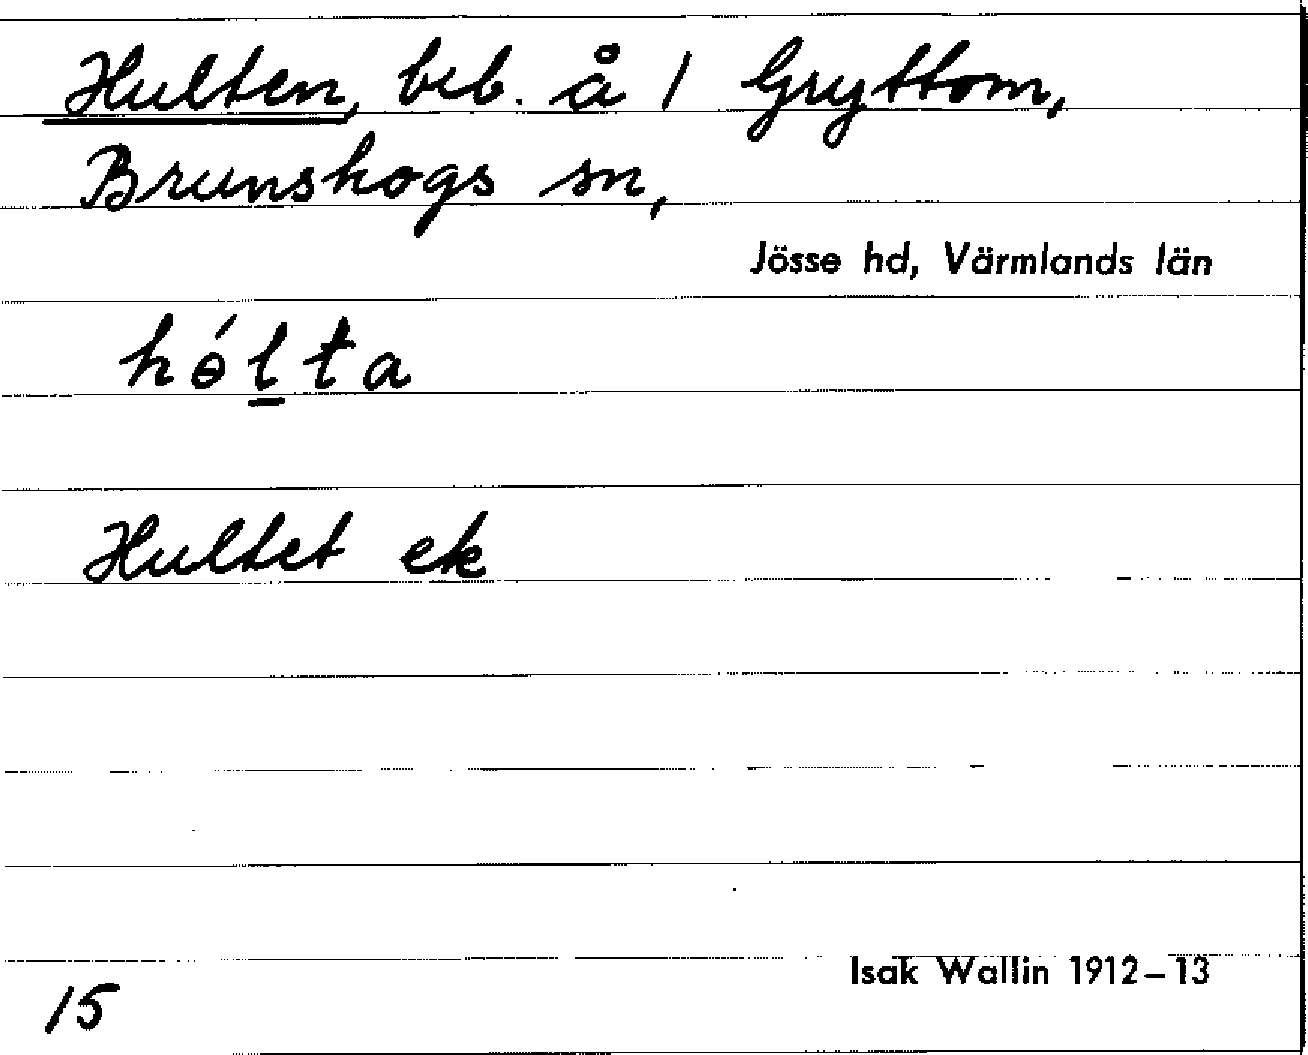 Hulten, beb. å 1 Gryttom,
Brunskogs sn,
Jösse hd, Värmlands län
hɵ́l̲ta
Hultet ek
Isak Wallin 1912–13
15